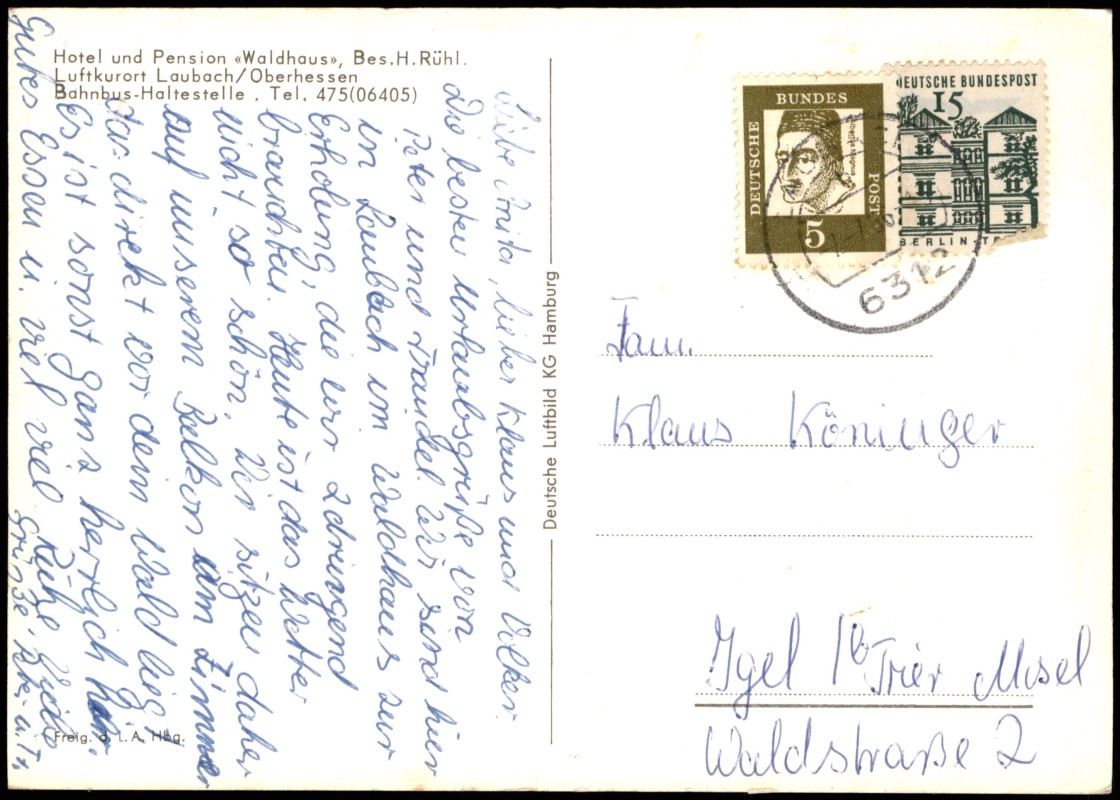 Hotel und Pension «Waldhaus», Bes.H.Rühl.
Luftkurort Laubach/Oberhessen
Bahnbus-Haltestelle . Tel. 475(06405)
lieber Klaus und Volker.
Die besten Urlaubsgrüße von
Peter und Traudel. Wir sind hier
in Laubach im Waldhaus zur
Erholung, die wir dringend
brauchten. Heute ist das Wetter
nicht so schön. Wir sitzen daher
auf unserem Balkon am Zimmer
das direkt vor dem Wald liegt
Es ist sonst ganz herrlich hier.
Gutes Essen u. viel viel Ruhe
Grüße Peter u. Tr.
Freig. d. L.A. Hbg.
Deutsche Luftbild KG Hamburg
DEUTSCHE BUNDESPOST
5
DEUTSCHE BUNDESPOST
15
BERLIN-
6312
Fam.
Klaus Köninger
Igel b/ Trier Mosel
Waldstraße 2